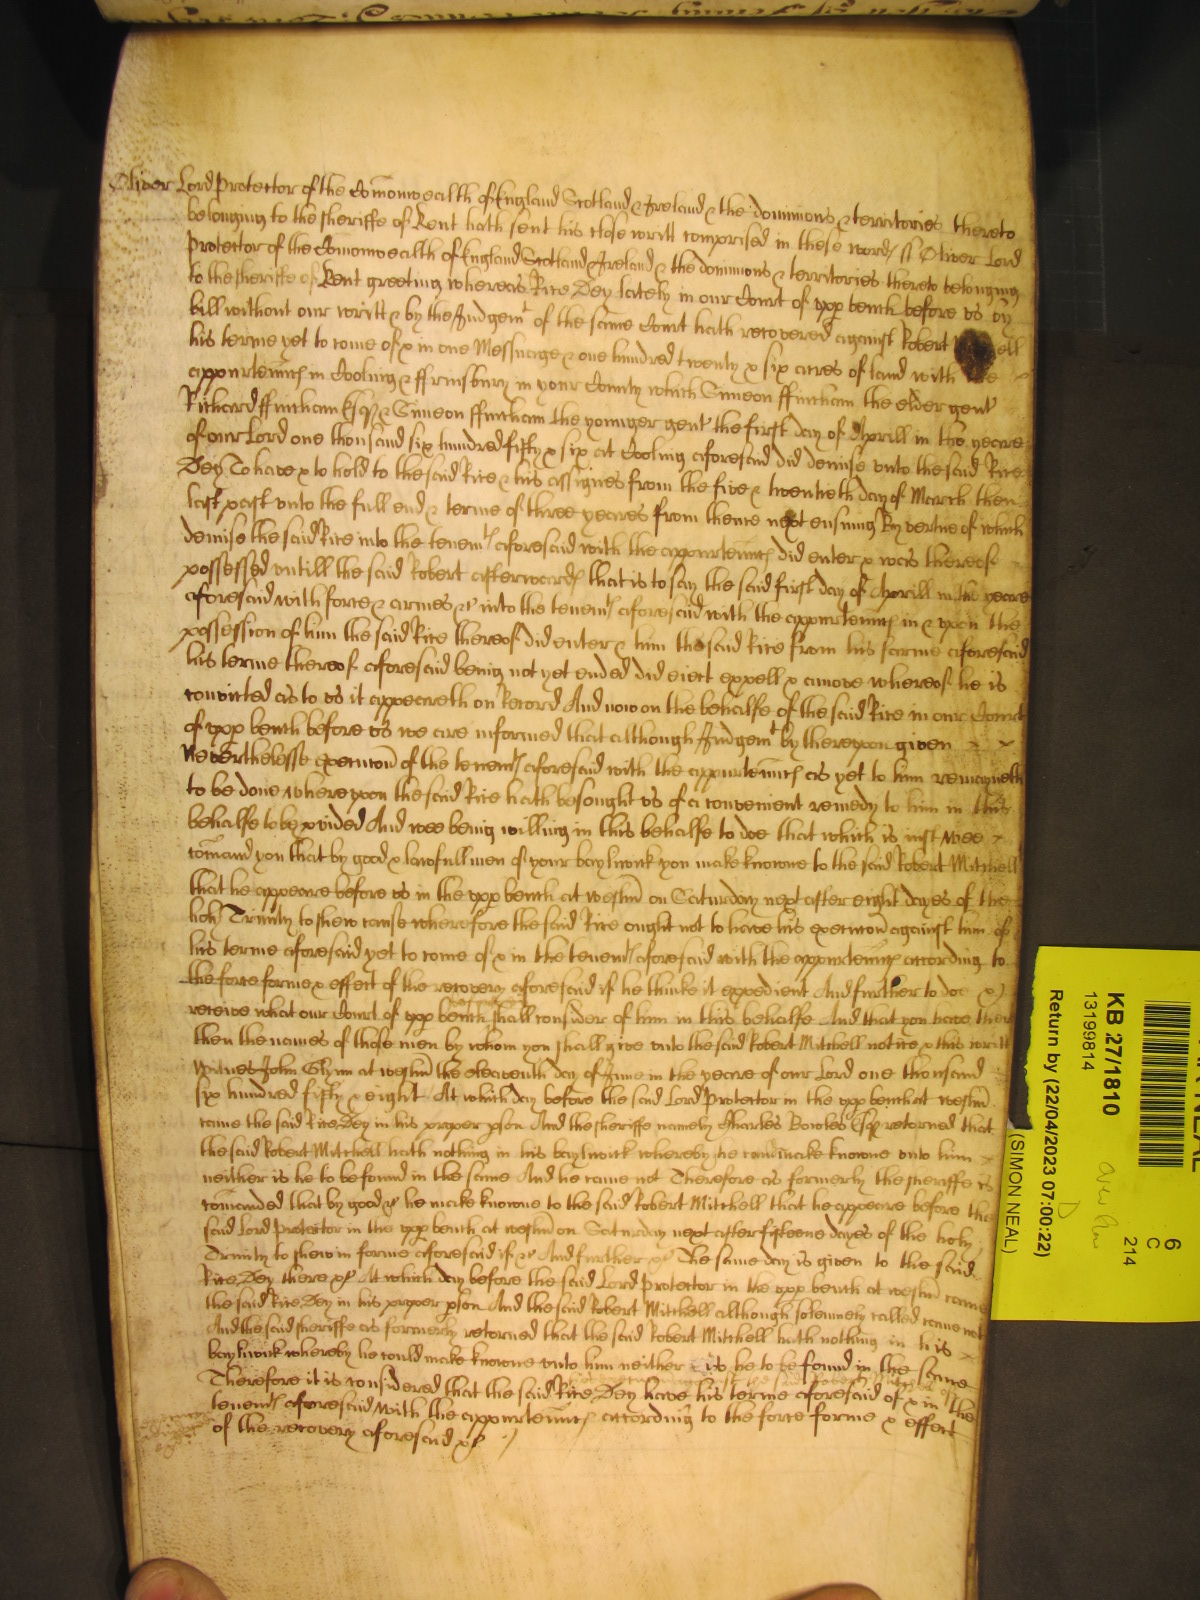 Oliver Lord Protector of the Comonwealth of England Scotland & Ireland & the dominions & territories thereto
belonging to the sheriffe of Kent hath sent his close writt comprised in these words ss Oliver Lord
Protector of the Comonwealth of England Scotland & Ireland & the dominions & territories thereto belonging
to the sheriffe of Kent greeting whereas Rice Dey lately in our Court of upp bench before us by
bill without our writt & by the Judgemt of the same Court hath recovered against Robert ell
his terme yet to come of & in one Messuage & one hundred twenty & six acres of land with
appurtennces in Cooling & ffrinsbury in your County which Simeon ffincham the elder gent
Richard ffincham Esqr & Simeon ffincham the younger gent the first day of Aprill in the yeare
of our Lord one thousand six hundred fifty & six at Cooling aforesaid did demise unto the said Rice
Dey To have & to hold to the said Rice & his assignes from the five & twentieth day of March then
last past unto the full end & terme of three yeares from thence next ensuing By vertue of which
demise the said Rice into the tenemts aforesaid with the appurtennces did enter & was thereof
possessed untill the said Robert afterwards that is to say the said first day of Aprill in the yeare
aforesaid with force & armes &c into the tenemts aforesaid with the appurtennces in & upon the
possession of him the said Rice thereof did enter & him the said Rice from his farme aforesaid
his terme thereof aforesaid being not yet ended did eiect expell & amove whereof he is
convicted as to us it appeareth on Record And now on the behalfe of the said Rice in our Court
of upp bench before us we are informed that although Judgemt be thereupon given
Neverthelesse execucon of the tenemts aforesaid with the appurtennces as yet to him remayneth
to be done whereupon the said Rice hath besought us of a convenient remedy to him in this
behalfe to be pvided And wee being willing in this behalfe to doe that which is iust Wee
comand you that by good & lawfull men of your baylwick you make knowne to the said Robert Mitchell
that he appeare before us in the upp bench at westm on Saturday next after eight dayes of the
holy Trinity to shew cause wherefore the said Rice ought not to have his execucon against him of
his terme aforesaid yet to come of & in the tenemts aforesaid with the appurtennces according to
the force forme & effect of the recovery aforesaid if he thinke it expedient And further to doe &
receive what our Court of upp bench shall consider of him in this behalfe And that you have there
then the names of those men by whom you shall give unto the said Robert Mitchell notice & this writt
Witnes John Glynn at westm the eleaventh day of June in the yeare of our Lord one thousand
six hundred fifty & eight At which day before the said Lord Protector in the upp bench at westm
came the said Rice Dey in his proper pson And the sheriffe namely Charles Bowles Esqr retorned that
the said Robert Mitchell hath nothing in his baylwick whereby he can make knowne unto him
neither is he to be found in the same And he came not Therefore as formerly the sheriffe is
comanded that by good &c he make knowne to the said Robert Mitchell that he appeare before the
said Lord Protector in the upp bench at westm on Saturday next after fifteene dayes of the holy
Trinity to shew in forme aforesaid if &c And further &c The same day is given to the said
Rice Dey there &c At which day before the said Lord Protector in the upp bench at westm came
the said Rice Dey in his proper pson And the said Robert Mitchell although solemnely called came not
And the said sheriffe as formerly retorned that the said Robert Mitchell hath nothing in his
baylwick whereby he could make knowne unto him neither is he to be found in the same
Therefore it is considered that the said Rice Dey have his terme aforesaid of & in the
tenemts aforesaid with the appurtennces according to the force forme & effect
of the recovery aforesaid &c
KB 27/1810
13199814
Return by (22/04/2023 07:00:22)
(SIMON NEAL)
6
C
214